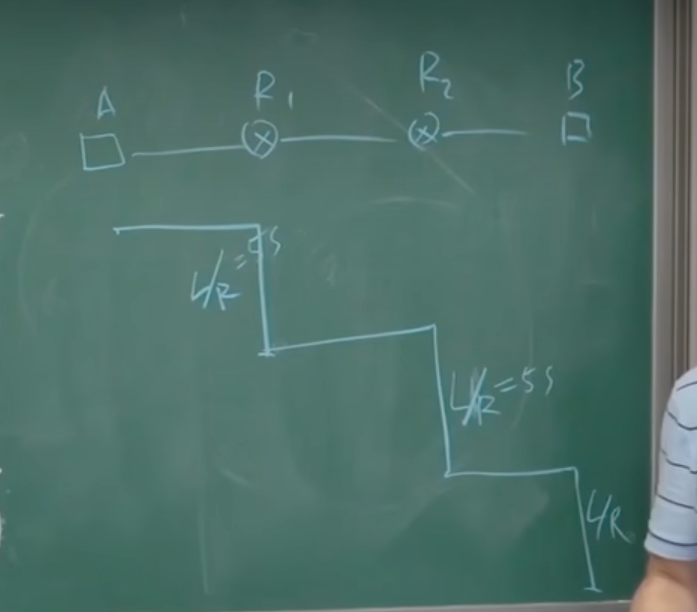 A R1 R2 B
L/R = 5s
L/R = 5s
L/R